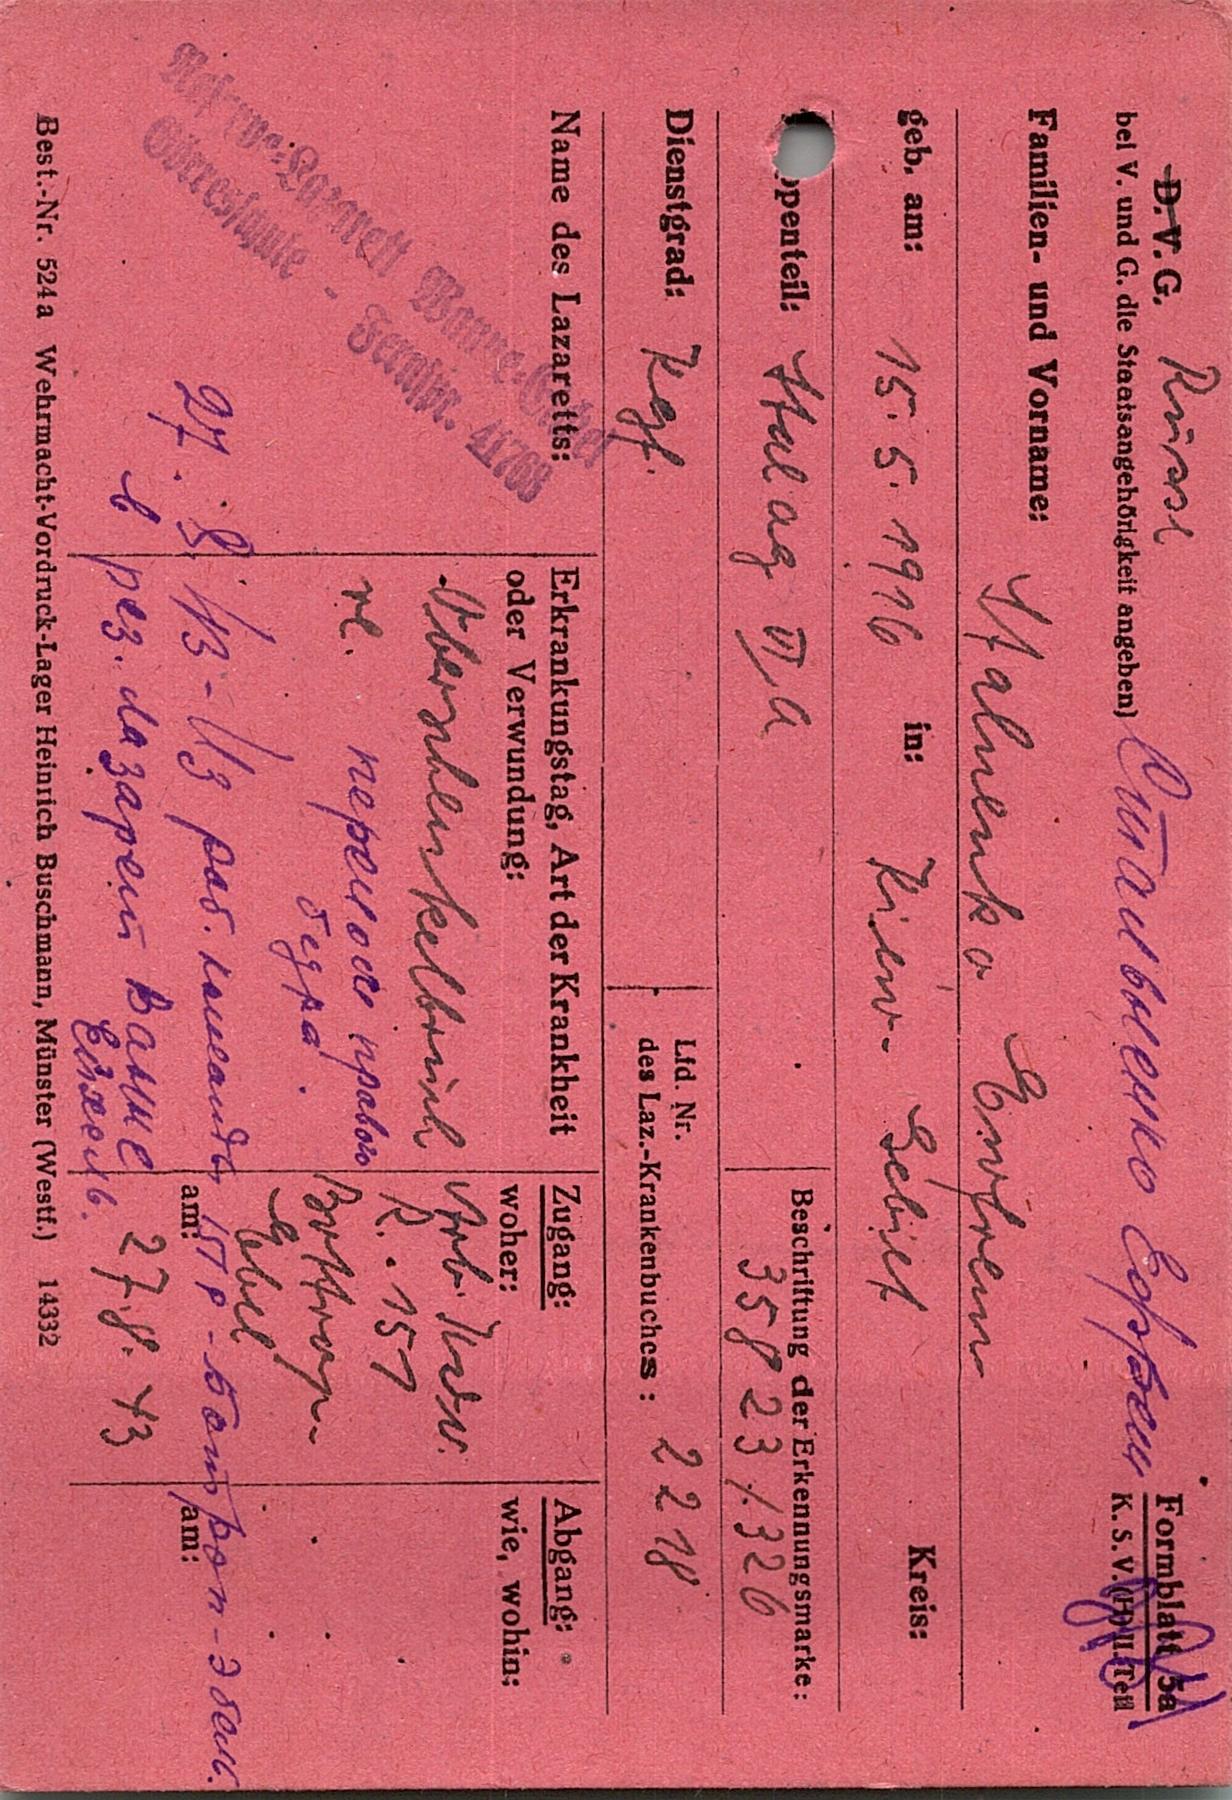 D. V. G. Russe
bei V. und G. die Staatsangehörigkeit angeben)
Стальненко Ефрем
Formblatt 5a
K. S. V. (H) II. Teil
Familien- und Vorname:
Stalnenko Emfrem
geb. am: 15. 5. 1916 in: Kiew- Gebiet Kreis:
ppenteil: Stalag VI, A
Beschriftung der Erkennungsmarke:
35823/326
Dienstgrad: Kgf.
Lfd. Nr.
des Laz.-Krankenbuches: 2218
Name des Lazaretts:
Reserve-Lazarett Wanne-Eickel
- Fernspr. 41768
Erkrankungstag, Art der Krankheit
oder Verwundung:
Oberschenkelbruch
re.
перелом правого
бедра.
Zugang:
woher:
Arb. Kdo.
R. 151
Bottrop-
Ebel
am: 27. 8. 43
Abgang:
wie, wohin:
am:
27. 8. 43 - Из раб. команды 151 Р - Ботроп - Эбел.
в рез. лазарет Ванне
Ейкель.
Best.-Nr. 524a Wehrmacht-Vordruck-Lager Heinrich Buschmann, Münster (Westf.) 14332